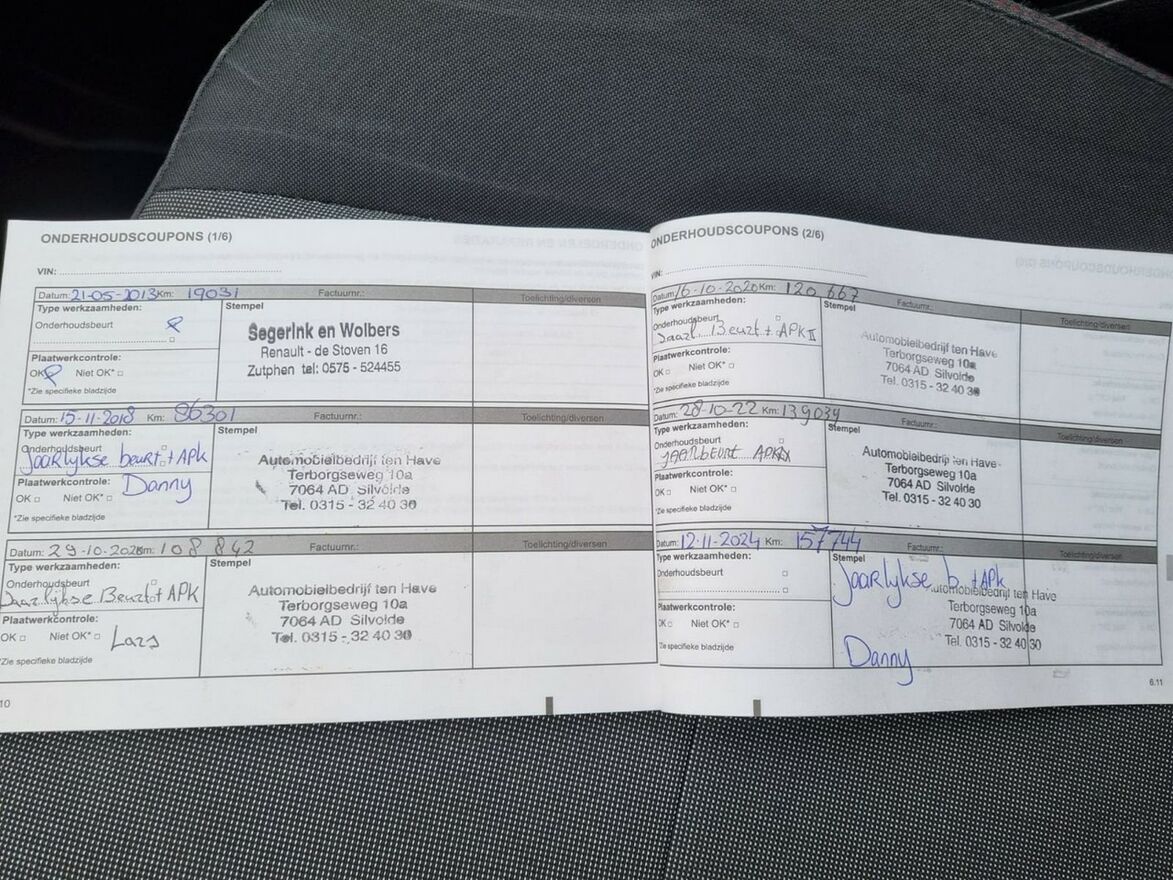 ONDERHOUDSCOUPONS (1/6)
VIN:
Datum: 21-05-2013 Km: 19031 Factuurnr.: Toelichting/diversen
Type werkzaamheden:
Onderhoudsbeurt
Plaatwerkcontrole:
OK Niet OK*
*Zie specifieke bladzijde
Stempel
Segerink en Wolbers
Renault - de Stoven 16
Zutphen tel: 0575 - 524455
Datum: 15-11-2018 Km: 86301 Factuurnr.: Toelichting/diversen
Type werkzaamheden:
Onderhoudsbeurt
Jaarlykse beurt + APK
Plaatwerkcontrole:
OK Niet OK*
Danny
*Zie specifieke bladzijde
Stempel
Automobielbedrijf ten Have
Terborgseweg 10a
7064 AD Silvolde
Tel. 0315 - 32 40 30
Datum: 29-10-202 Km: 108 842 Factuurnr.: Toelichting/diversen
Type werkzaamheden:
Onderhoudsbeurt
Jaarlykse Beurt + APK
Plaatwerkcontrole:
OK Niet OK*
Lars
*Zie specifieke bladzijde
Stempel
Automobielbedrijf ten Have
Terborgseweg 10a
7064 AD Silvolde
Tel. 0315 - 32 40 30
10
ONDERHOUDSCOUPONS (2/6)
VIN:
Datum: 16-10-2020 Km: 120 667 Factuurnr.: Toelichting/diversen
Type werkzaamheden:
Onderhoudsbeurt
Jaarl. Beurt + APK II
Plaatwerkcontrole:
OK Niet OK*
*Zie specifieke bladzijde
Stempel
Automobielbedrijf ten Have
Terborgseweg 10a
7064 AD Silvolde
Tel. 0315 - 32 40 30
Datum: 28-10-22 Km: 139034 Factuurnr.: Toelichting/diversen
Type werkzaamheden:
Onderhoudsbeurt
JAARBEURT APK
Plaatwerkcontrole:
OK Niet OK*
*Zie specifieke bladzijde
Stempel
Automobielbedrijf ten Have
Terborgseweg 10a
7064 AD Silvolde
Tel. 0315 - 32 40 30
Datum: 12-11-2024 Km: 157744 Factuurnr.: Toelichting/diversen
Type werkzaamheden:
Onderhoudsbeurt
Plaatwerkcontrole:
OK Niet OK*
*Zie specifieke bladzijde
Stempel
Jaarlykse b. + APK
Automobielbedrijf ten Have
Terborgseweg 10a
7064 AD Silvolde
Tel. 0315 - 32 40 30
Danny
6.11